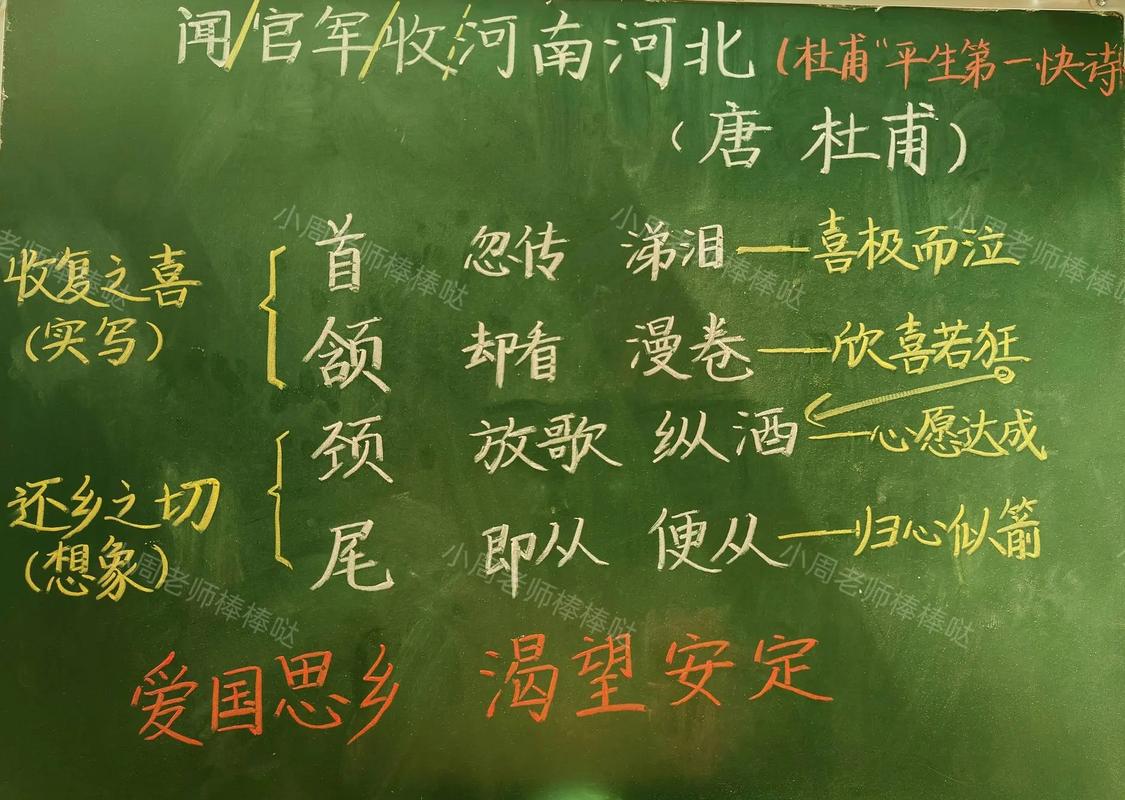 闻/官军/收/河南河北 (杜甫"平生第一快诗
(唐 杜甫)
收复之喜
(实写)
首 忽传 涕泪——喜极而泣
颔 却看 漫卷——欣喜若狂
颈 放歌 纵酒——心愿达成
尾 即从 便从——归心似箭
还乡之切
(想象)
爱国思乡 渴望安定
小周老师棒棒哒
小周老师棒棒哒
小周老师棒棒哒
小周老师棒棒哒
小周老师棒棒哒
小周老师棒棒哒